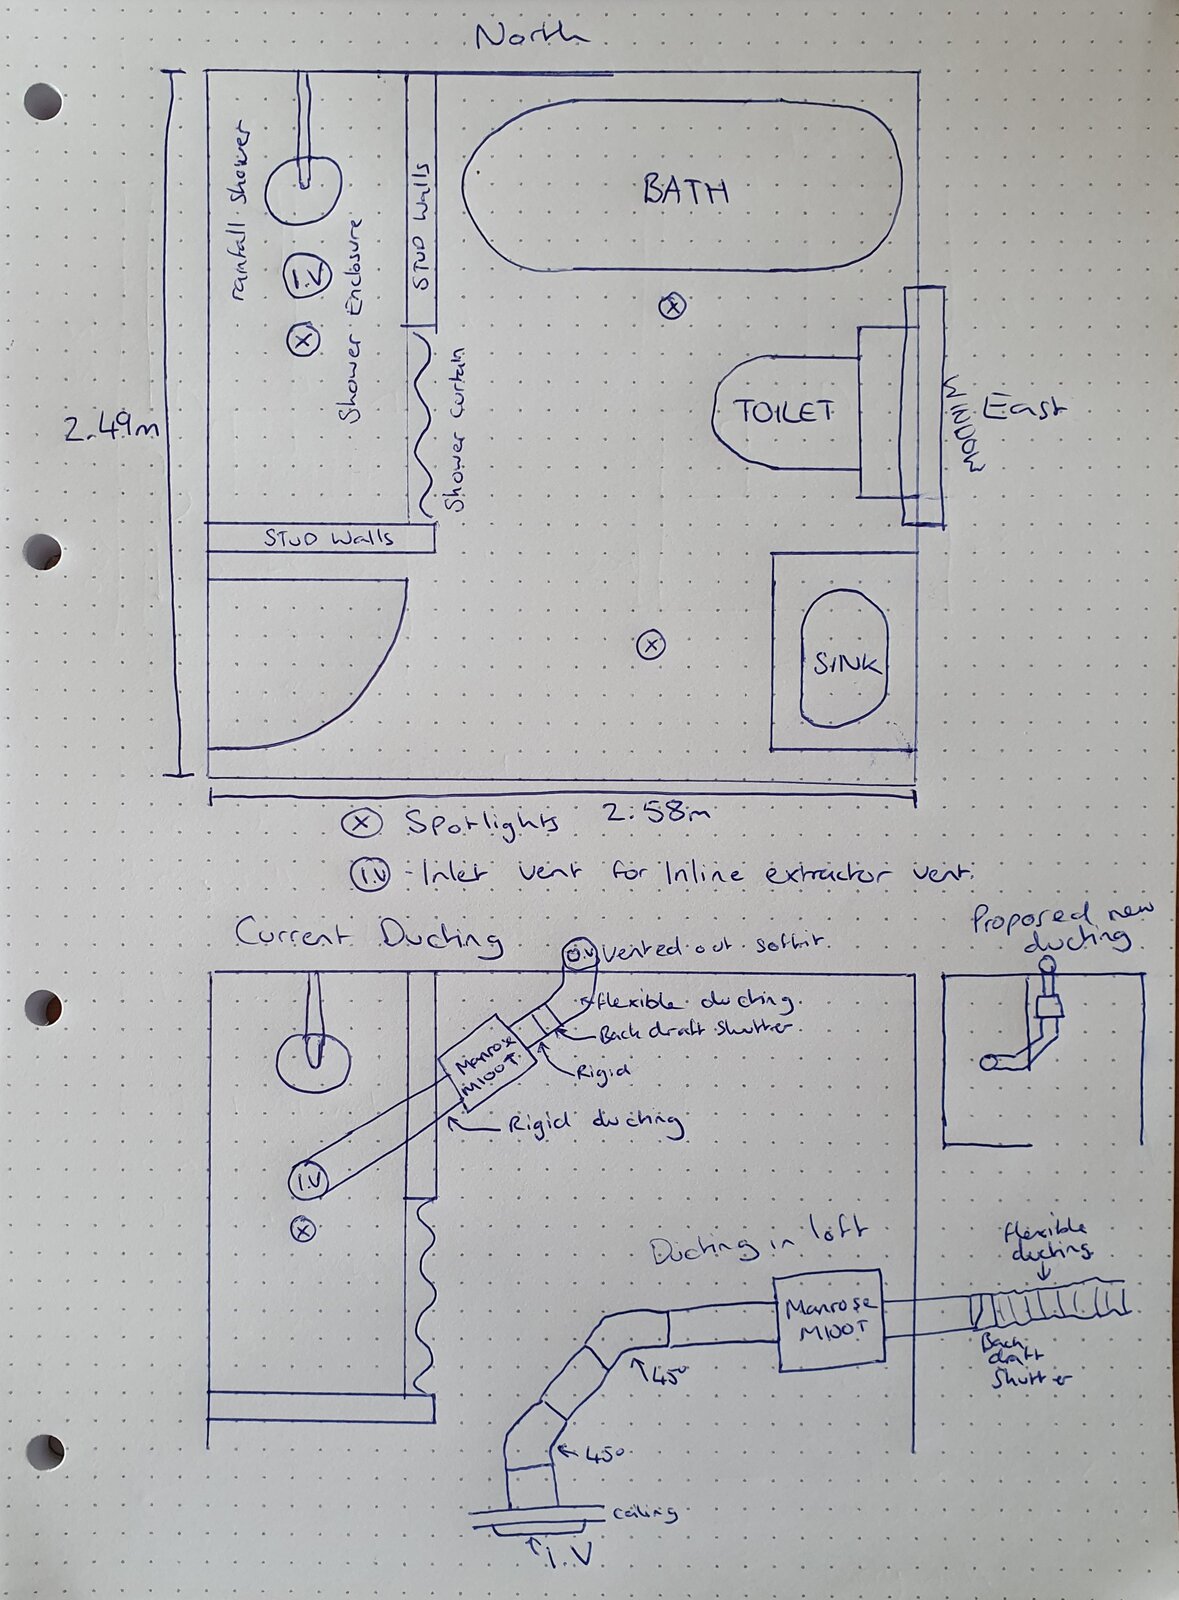 North
rainfall shower
I.V
Shower Enclosure
STUD Walls
BATH
Shower curtain
TOILET
WINDOW
East
2.49m
STUD Walls
SINK
2.58m
Spotlights
I.V - Inlet vent for Inline extractor vent.
Current Ducting
O.V Vented out soffit.
flexible ducting.
Back draft shutter.
Rigid
Manrose
M100T.
Rigid ducting
I.V
Proposed new
ducting
Ducting in loft
flexible
ducting
Manrose
M100T
Back
draft
Shutter
45°
45°
ceiling
I.V